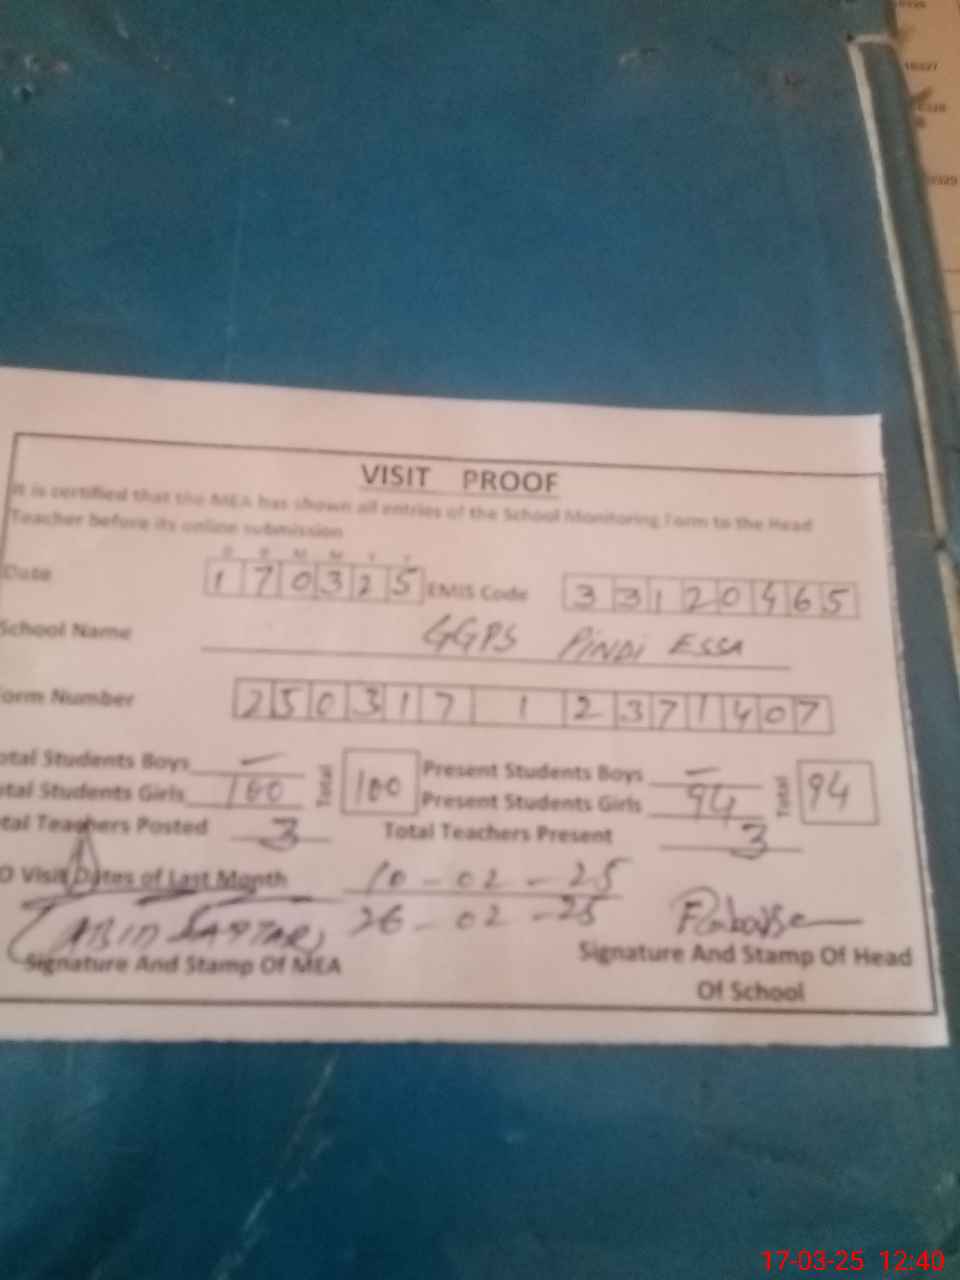 VISIT PROOF
It is certified that the MEA has shown all entries of the School Monitoring Form to the Head
Teacher before its online submission
D D M M Y Y
Date 170325 EMIS Code 33120465
School Name GGPS PINDI ESSA
orm Number 250317 1 2371407
otal Students Boys — Total 100 Present Students Boys — Total 94
otal Students Girls 100 Present Students Girls 94
otal Teachers Posted 3 Total Teachers Present 3
O Visit Dates of Last Month 10-02-25
26-02-25
ABID SATTAR
Signature And Stamp Of MEA
Signature And Stamp Of Head
Of School
17-03-25 12:40